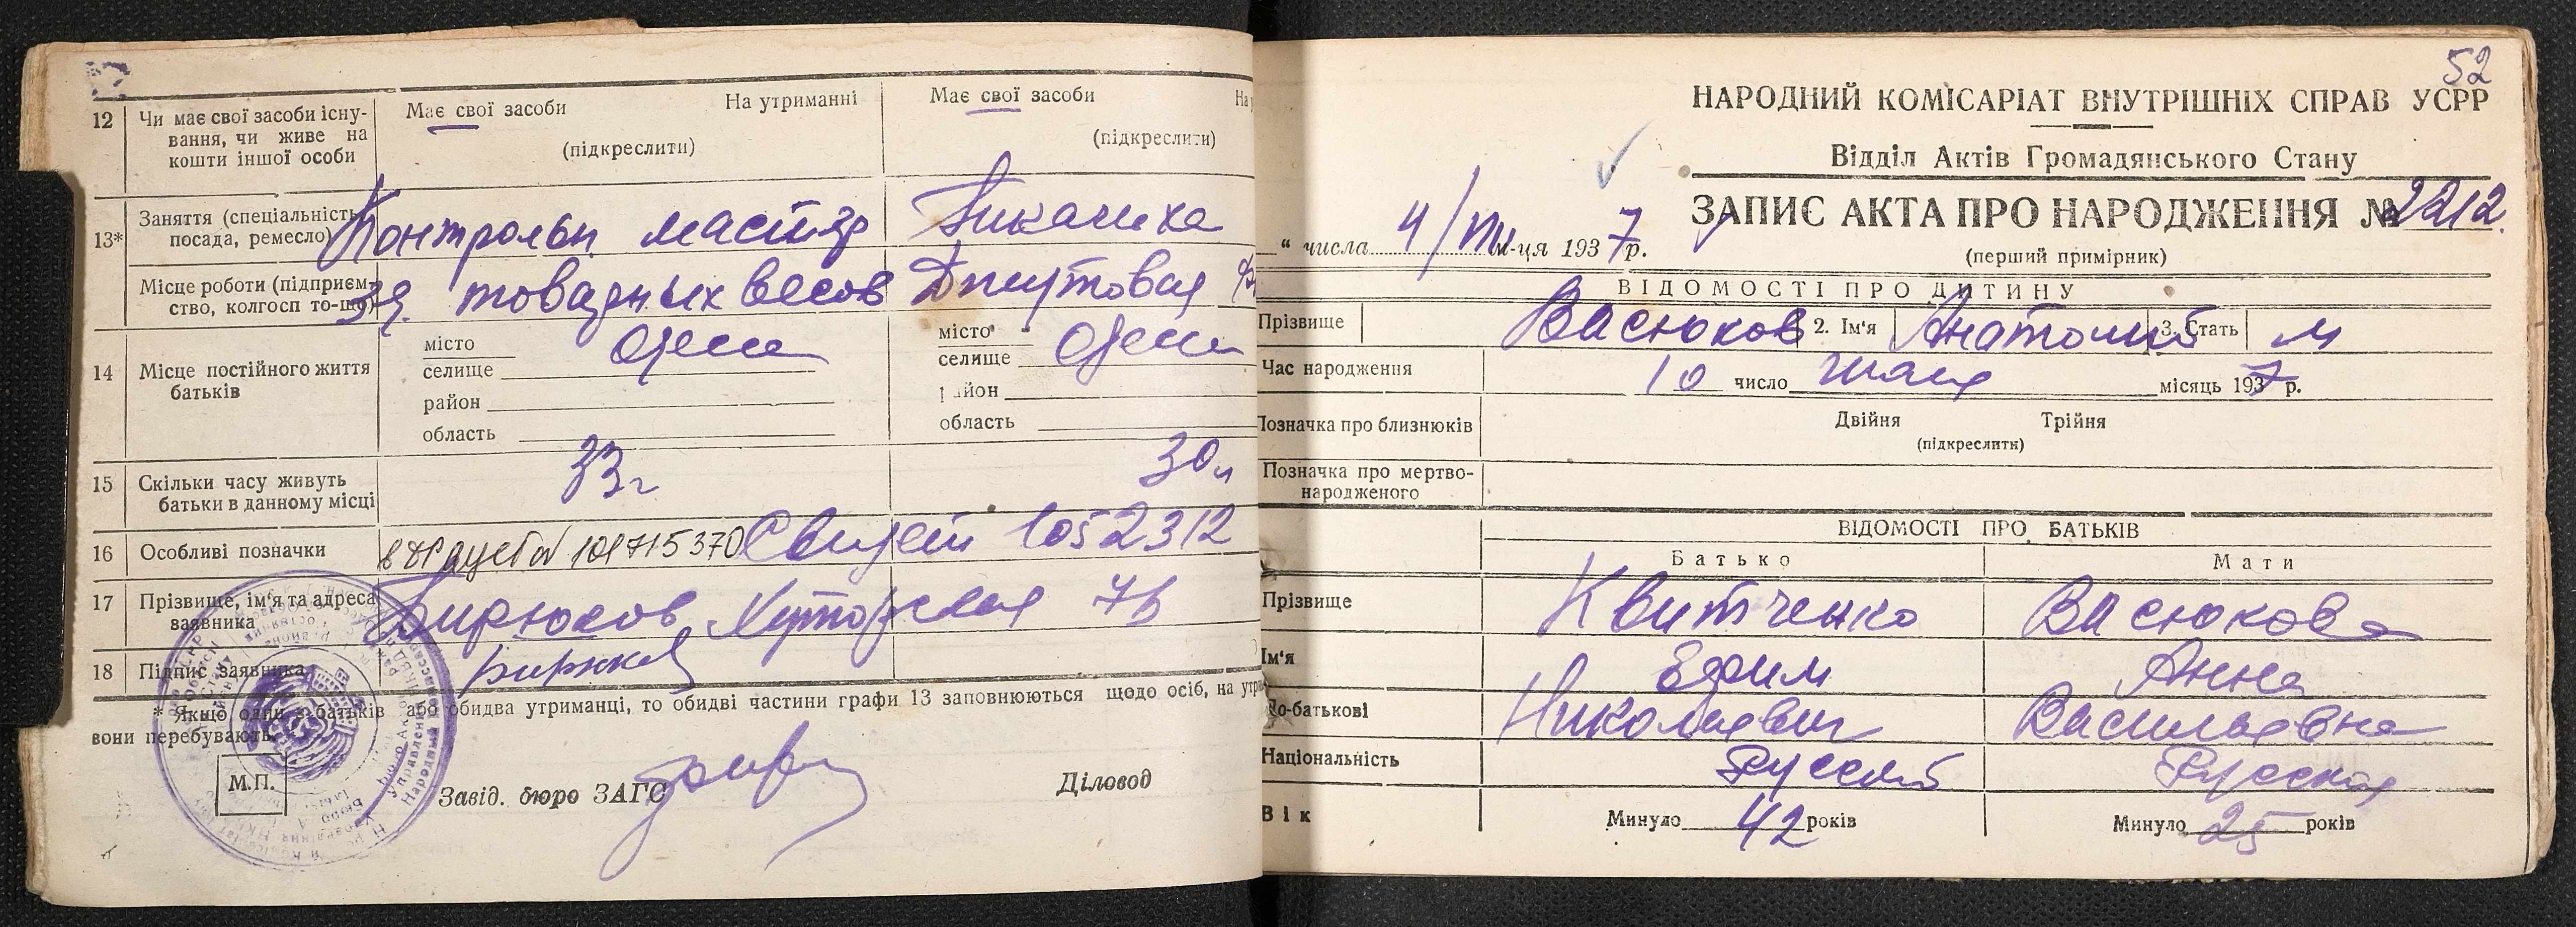 12 Чи має свої засоби існу-
вання, чи живе на
кошти іншої особи
Має свої засоби На утриманні
(підкреслити)
Має свої засоби На у
(підкреслити)
13* Заняття (спеціальність,
посада, ремесло)
Контрольн мастер
Місце роботи (підприєм-
ство, колгосп то-що)
зд. товарных весов
Джутовая ф
14 Місце постійного життя
батьків
місто Одесса
селище
район
область
місто Одесса
селище
район
область
15 Скільки часу живуть
батьки в данному місці
33 г
30 л
16 Особливі позначки
101715370 Свидет 1052312
17 Прізвище, ім'я та адреса
заявника
Бирюков Хуторская 7в
18 Підпис заявника
Бирюков
* Якщо один з батьків або обидва утриманці, то обидві частини графи 13 заповнюються щодо осіб, на утри
вони перебувають.
М.П.
Завід. бюро ЗАГС
Діловод
52
НАРОДНИЙ КОМІСАРІАТ ВНУТРІШНІХ СПРАВ УСРР
Відділ Актів Громадянського Стану
ЗАПИС АКТА ПРО НАРОДЖЕННЯ № 2212.
(перший примірник)
" числа 4/ м-ця 1937 р.
ВІДОМОСТІ ПРО ДИТИНУ
Прізвище Васюков 2. Ім'я Анатолий 3. Стать м
Час народження 10 число мая місяць 1937 р.
Позначка про близнюків
Двійня Трійня
(підкреслити)
Позначка про мертво-
народженого
ВІДОМОСТІ ПРО БАТЬКІВ
Батько Мати
Прізвище Квитченко Васюкова
Ім'я Ефим Анна
По-батькові Николаевич Васильевна
Національність Русский Русская
Вік Минуло 42 років Минуло 25 років